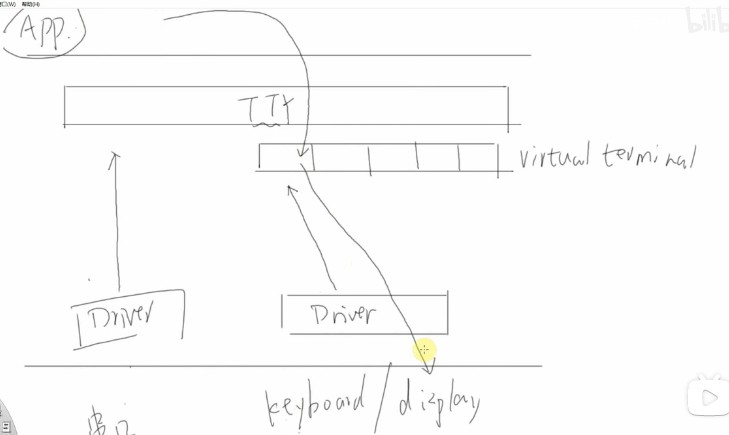 帮助(H)
App.
bilib
TTY
virtual terminal
Driver
Driver
keyboard / display
串口